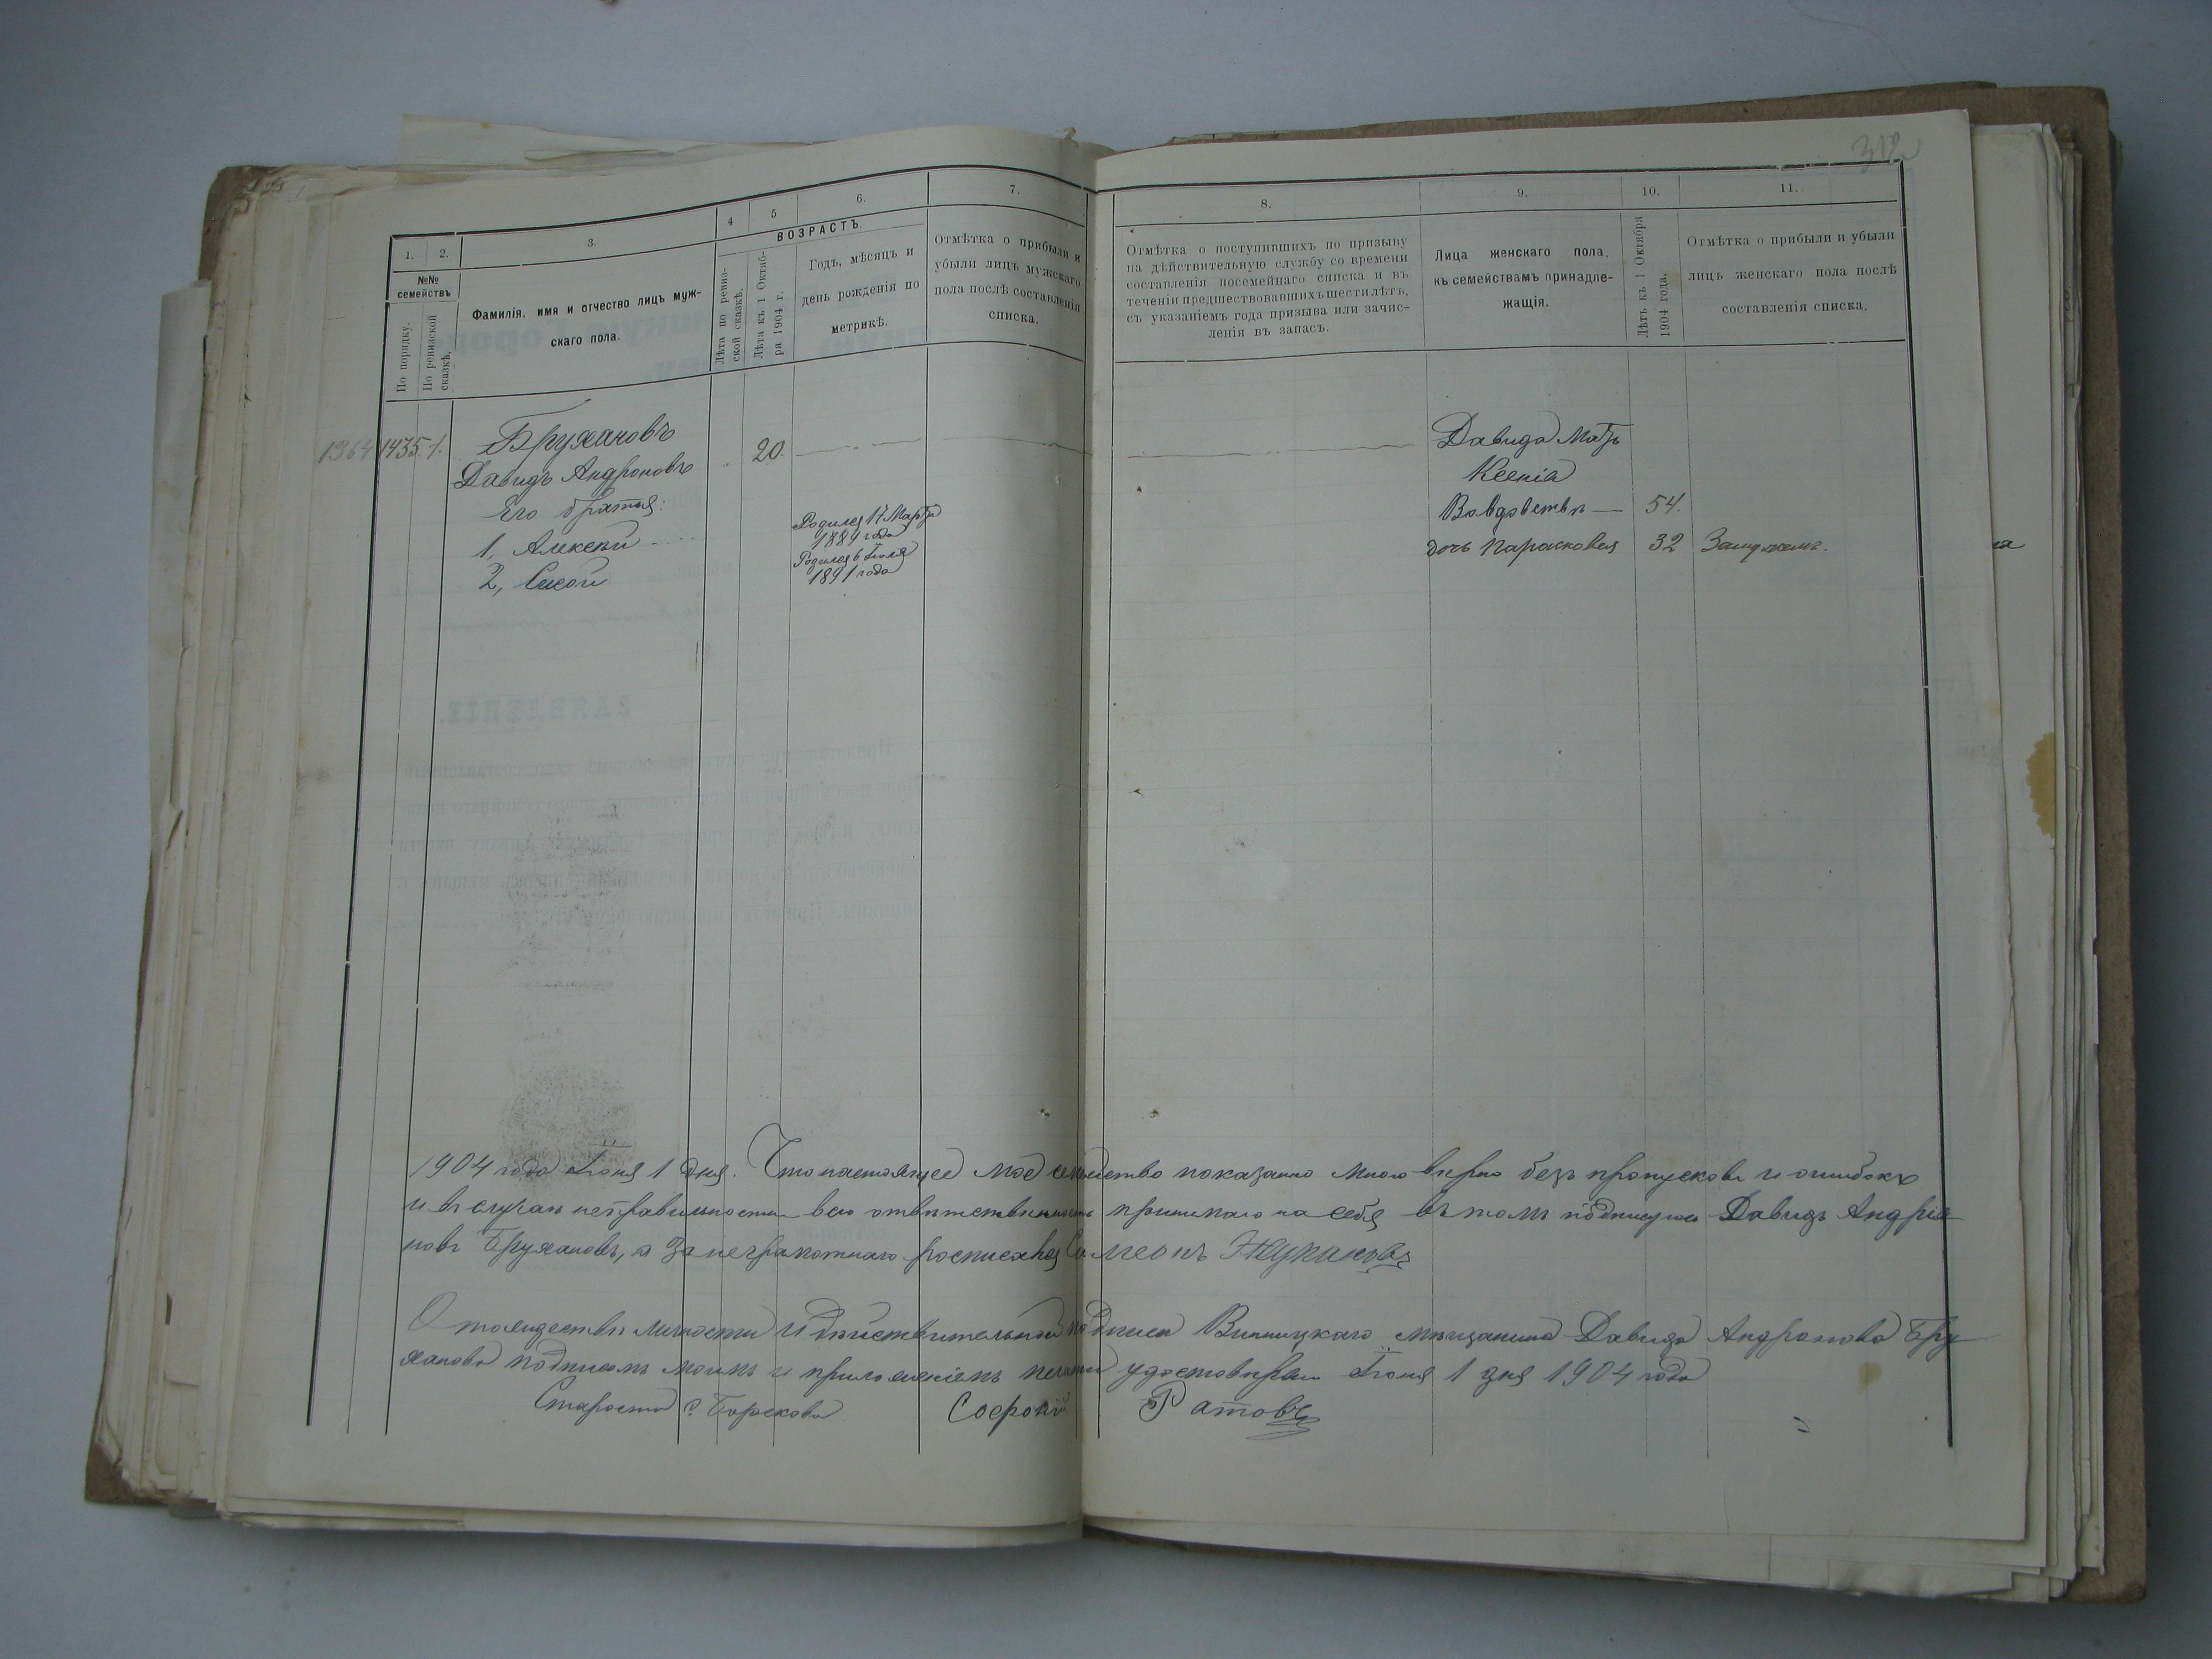 312
1. 2. 3. 4 5 6. 7. 8. 9. 10. 11.
№№ семействъ
По порядку.
По ревизской сказкѣ.
Фамилія, имя и отчество лицъ муж-
скаго пола.
ВОЗРАСТЪ.
Лѣта по ревиз-
ской сказкѣ.
Лѣта къ 1 Октяб-
ря 1904 г.
Годъ, мѣсяцъ и
день рожденія по
метрикѣ.
Отмѣтка о прибыли и
убыли лицъ мужскаго
пола послѣ составленія
списка.
Отмѣтка о поступившихъ по призыву
на дѣйствительную службу со времени
составленія посемейнаго списка и въ
теченіи предшествовавшихъ шести лѣтъ,
съ указаніемъ года призыва или зачис-
ленія въ запасъ.
Лица женскаго пола,
къ семействамъ принадле-
жащія.
Лѣтъ къ 1 Октября
1904 года.
Отмѣтка о прибыли и убыли
лицъ женскаго пола послѣ
составленія списка.
1364 1435. 1. Бружановъ
Давидъ Андроновъ 20.
Его братья:
1, Алексѣй Родился 17 Марта
1889 года
2, Сисой Родился 6 Іюля
1891 года
Давида Мать
Ксенія
Вовдовствѣ — 54.
дочь Парасковея 32 Замужемъ.
ЗАЯВЛЕНІЕ.
1904 года Іюня 1 дня. Что настоящее мое семейство показанно мною вѣрно безъ пропусковъ и ошибокъ
и въ случаѣ неправильности всю отвѣтственность принимаю на себя въ томъ подписуюсь Давидъ Андрія-
новъ Бружановъ, а за неграмотнаго росписался
О тождествѣ личности и дѣйствительной подписи Винницкаго мѣщанина Давида Андронова Бру
жанова подписомъ моимъ и приложеніемъ печати удостовѣряю Іюня 1 дня 1904 года
Староста с. Борскова